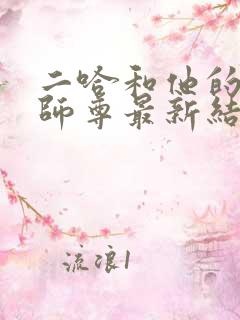 二哈和他的
師尊最新結
流浪1